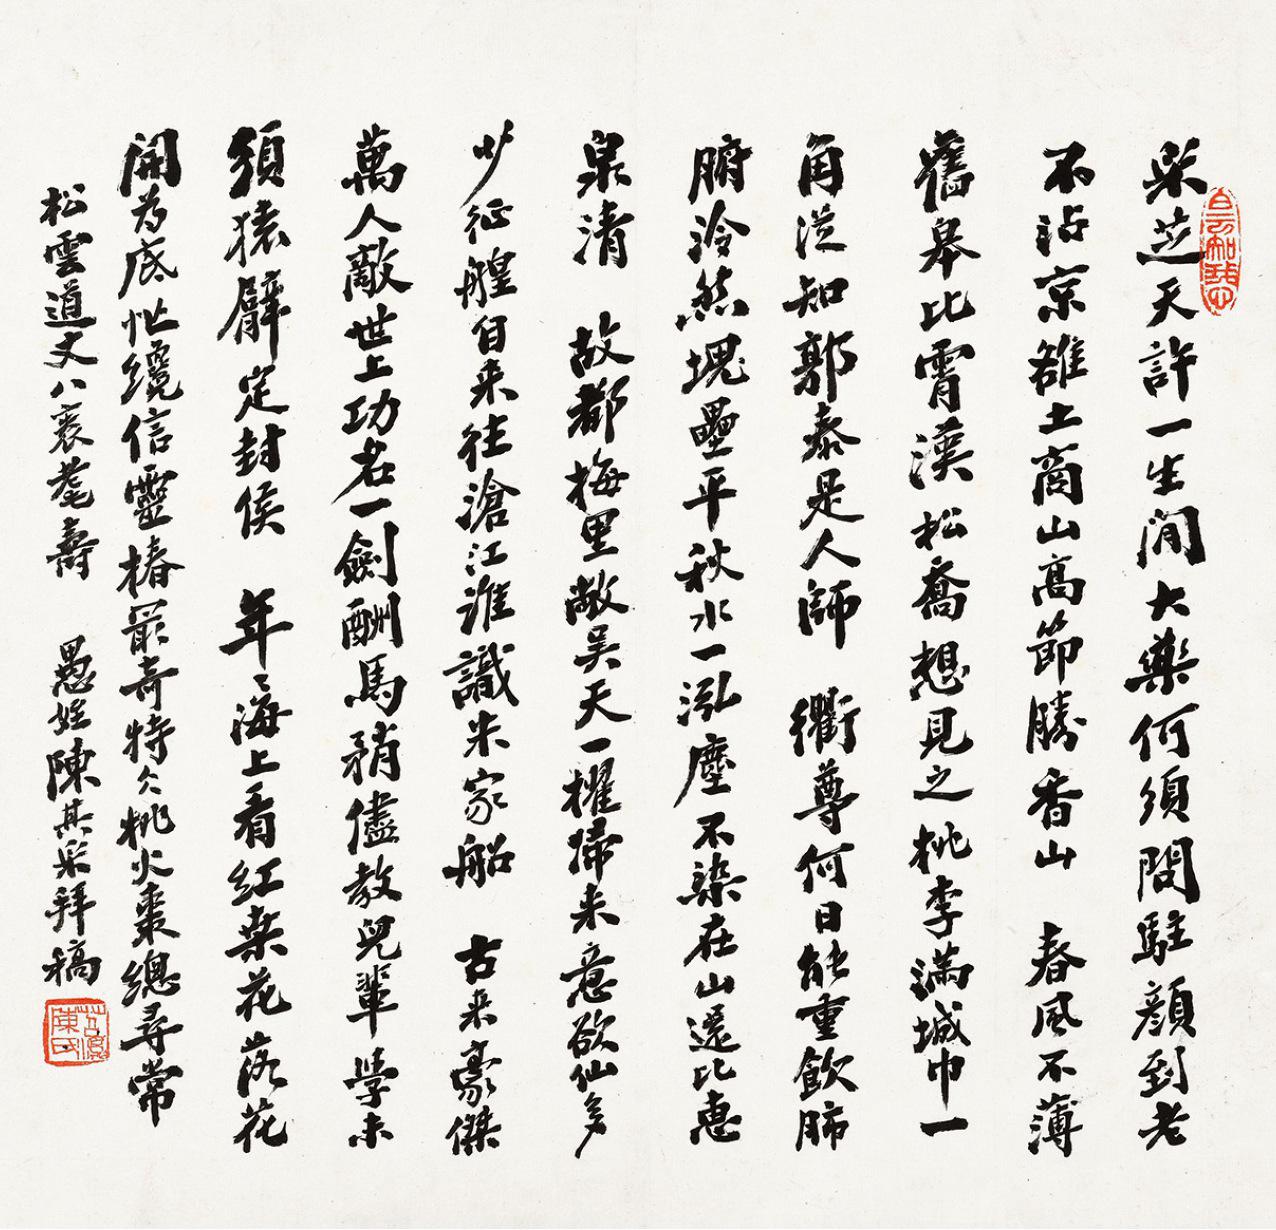 采芝天許一生閒大藥何須問駐顏到老
不沾京雒土商山高節勝香山　春風不薄
舊皋比霄漢松喬想見之桃李滿城巾一
角從知郭泰是人師　衢尊何日能重飲肺
腑泠然塊壘平秋水一泓塵不染在山還比惠
泉清　故都梅里敞吳天一櫂歸來意欲仙多
少征艎自來往滄江誰識米家船　古來豪傑
萬人敵世上功名一劍酬馬矟儘教兒輩學未
須猿臂定封侯　年〻海上看紅桑花落花
開為底忙纔信靈椿最奇特仌桃火棗總尋常
松雲道丈八袠耄壽　愚姪陳其采拜稿